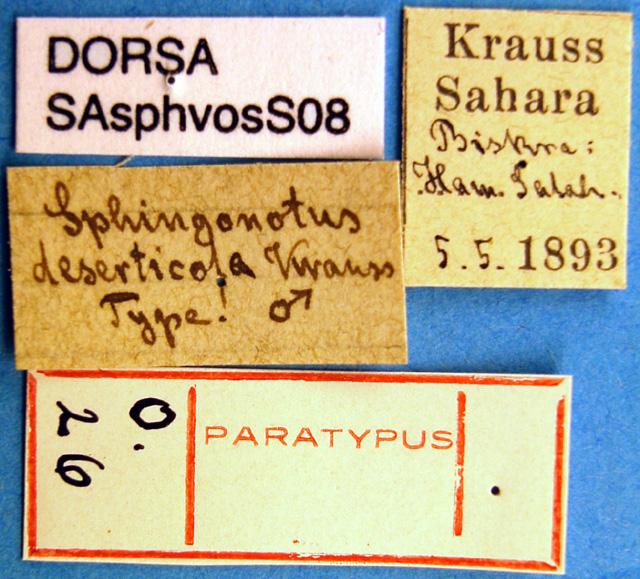 DORSA
SAsphvosS08
Krauss
Sahara
Biskra:
Ham. Salah.
5.5.1893
Sphingonotus
deserticola Krauss
Type! ♂
PARATYPUS
O.
26